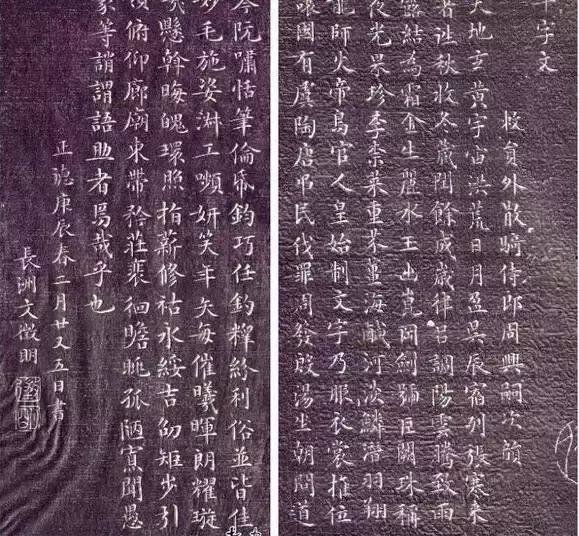 千字文
敕員外散騎侍郎周興嗣次韻
天地玄黃宇宙洪荒日月盈昃辰宿列張寒來
暑往秋收冬藏閏餘成歲律呂調陽雲騰致雨
露結為霜金生麗水玉出崑岡劍號巨闕珠稱
夜光果珍李柰菜重芥薑海鹹河淡鱗潛羽翔
龍師火帝鳥官人皇始制文字乃服衣裳推位
讓國有虞陶唐弔民伐罪周發殷湯坐朝問道
琴阮嘯恬筆倫紙鈞巧任釣釋紛利俗並皆佳
妙毛施姿淑工嚬妍笑年矢每催曦暉朗耀璇
璣懸斡晦魄環照指薪修祜永綏吉劭矩步引
領俯仰廊廟束帶矜莊裴徊瞻眺孤陋寡聞愚
蒙等誚謂語助者焉哉乎也
正德庚辰春二月廿又五日書
長洲文徵明